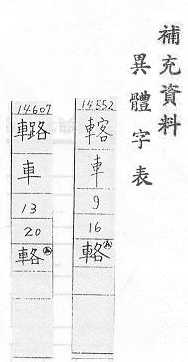 補充資料
異體字表
14552
車
9
16
輅Ⓐ
14607
車
13
20
輅Ⓐ